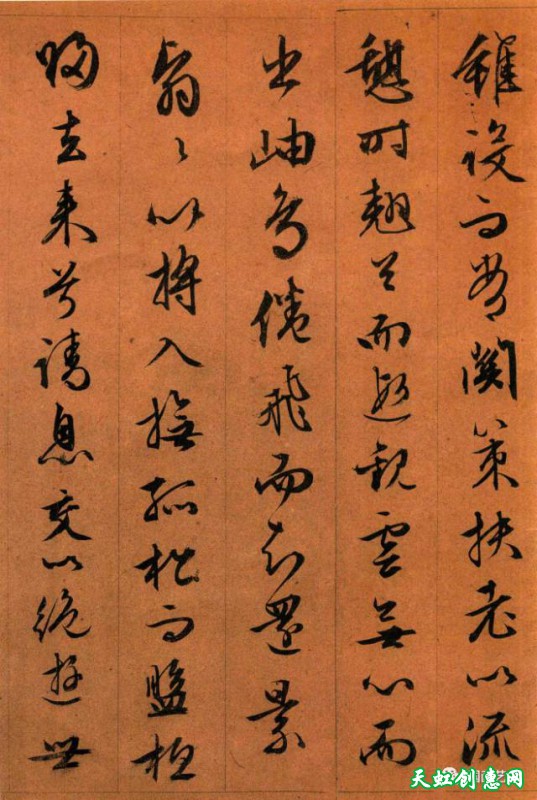 雖設而常關策扶老以流
憩時翹首而遐觀雲無心而
出岫鳥倦飛而知還景
翳〻以將入撫孤松而盤桓
歸去來兮請息交以絕遊世
天虹创惠网